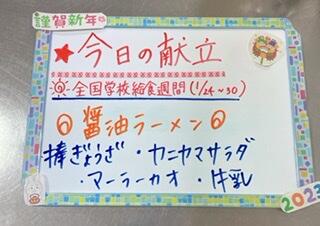 謹賀新年
★今日の献立
全国学校給食週間(1/24~30)
醤油ラーメン
棒ぎょうざ・カニヤマサラダ
・マーラーカオ・牛乳
2023